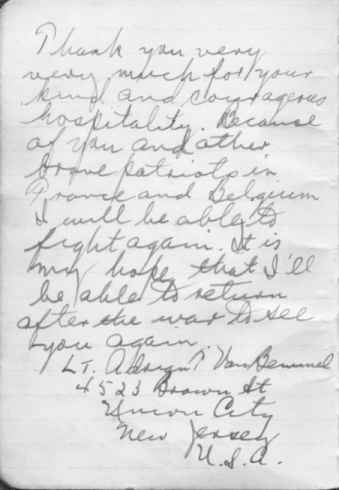 Thank you very
very much for your
kind and courageous
hospitality. Because
of you and other
brave patriots in
France and Belgium
I will be able to
fight again. It is
my hope that I'll
be able to return
after the war to see
you again.
Lt. Van
4523 Brown St
Union City
New Jersey
U.S.A.